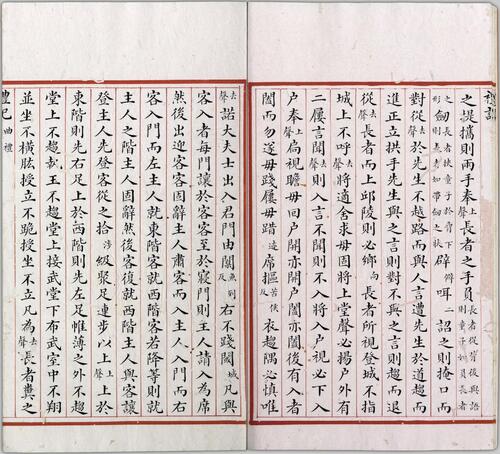 禮記
之提攜則兩手奉上聲長者之手負長者從背後與語則童子如負長者
之形劒長者扶童子於脅下則長者如帶劒之狀辟僻咡二詔之則掩口而
對從去聲於先生不越路而與人言遭先生於道趨而
進正立拱手先生與之言則對不與之言則趨而退
從去聲長者而上上聲邱陵則必鄉向長者所視登城不指
城上不呼去聲將適舍求毋固將上堂聲必揚戶外有
二屨言聞去聲則入言不聞則不入將入戶視必下入
戶奉上聲扃視瞻毋回戶開亦開戶闔亦闔後有入者
闔而勿遂毋踐屨毋踖席摳苦侯反衣趨隅必慎唯
去聲諾大夫士出入君門由闑魚列反右不踐閾域凡與
客入者每門讓於客客至於寢門則主人請入為席
然後出迎客客固辭主人肅客而入主人入門而右
客入門而左主人就東階客就西階客若降等則就
主人之階主人固辭然後客復就西階主人與客讓
登主人先登客從之拾涉級聚足連步以上上聲上於
東階則先右足上於西階則先左足帷薄之外不趨
堂上不趨執玉不趨堂上接武堂下布武室中不翔
並坐不橫肱授立不跪授坐不立凡為去聲長者糞之
禮記 曲禮